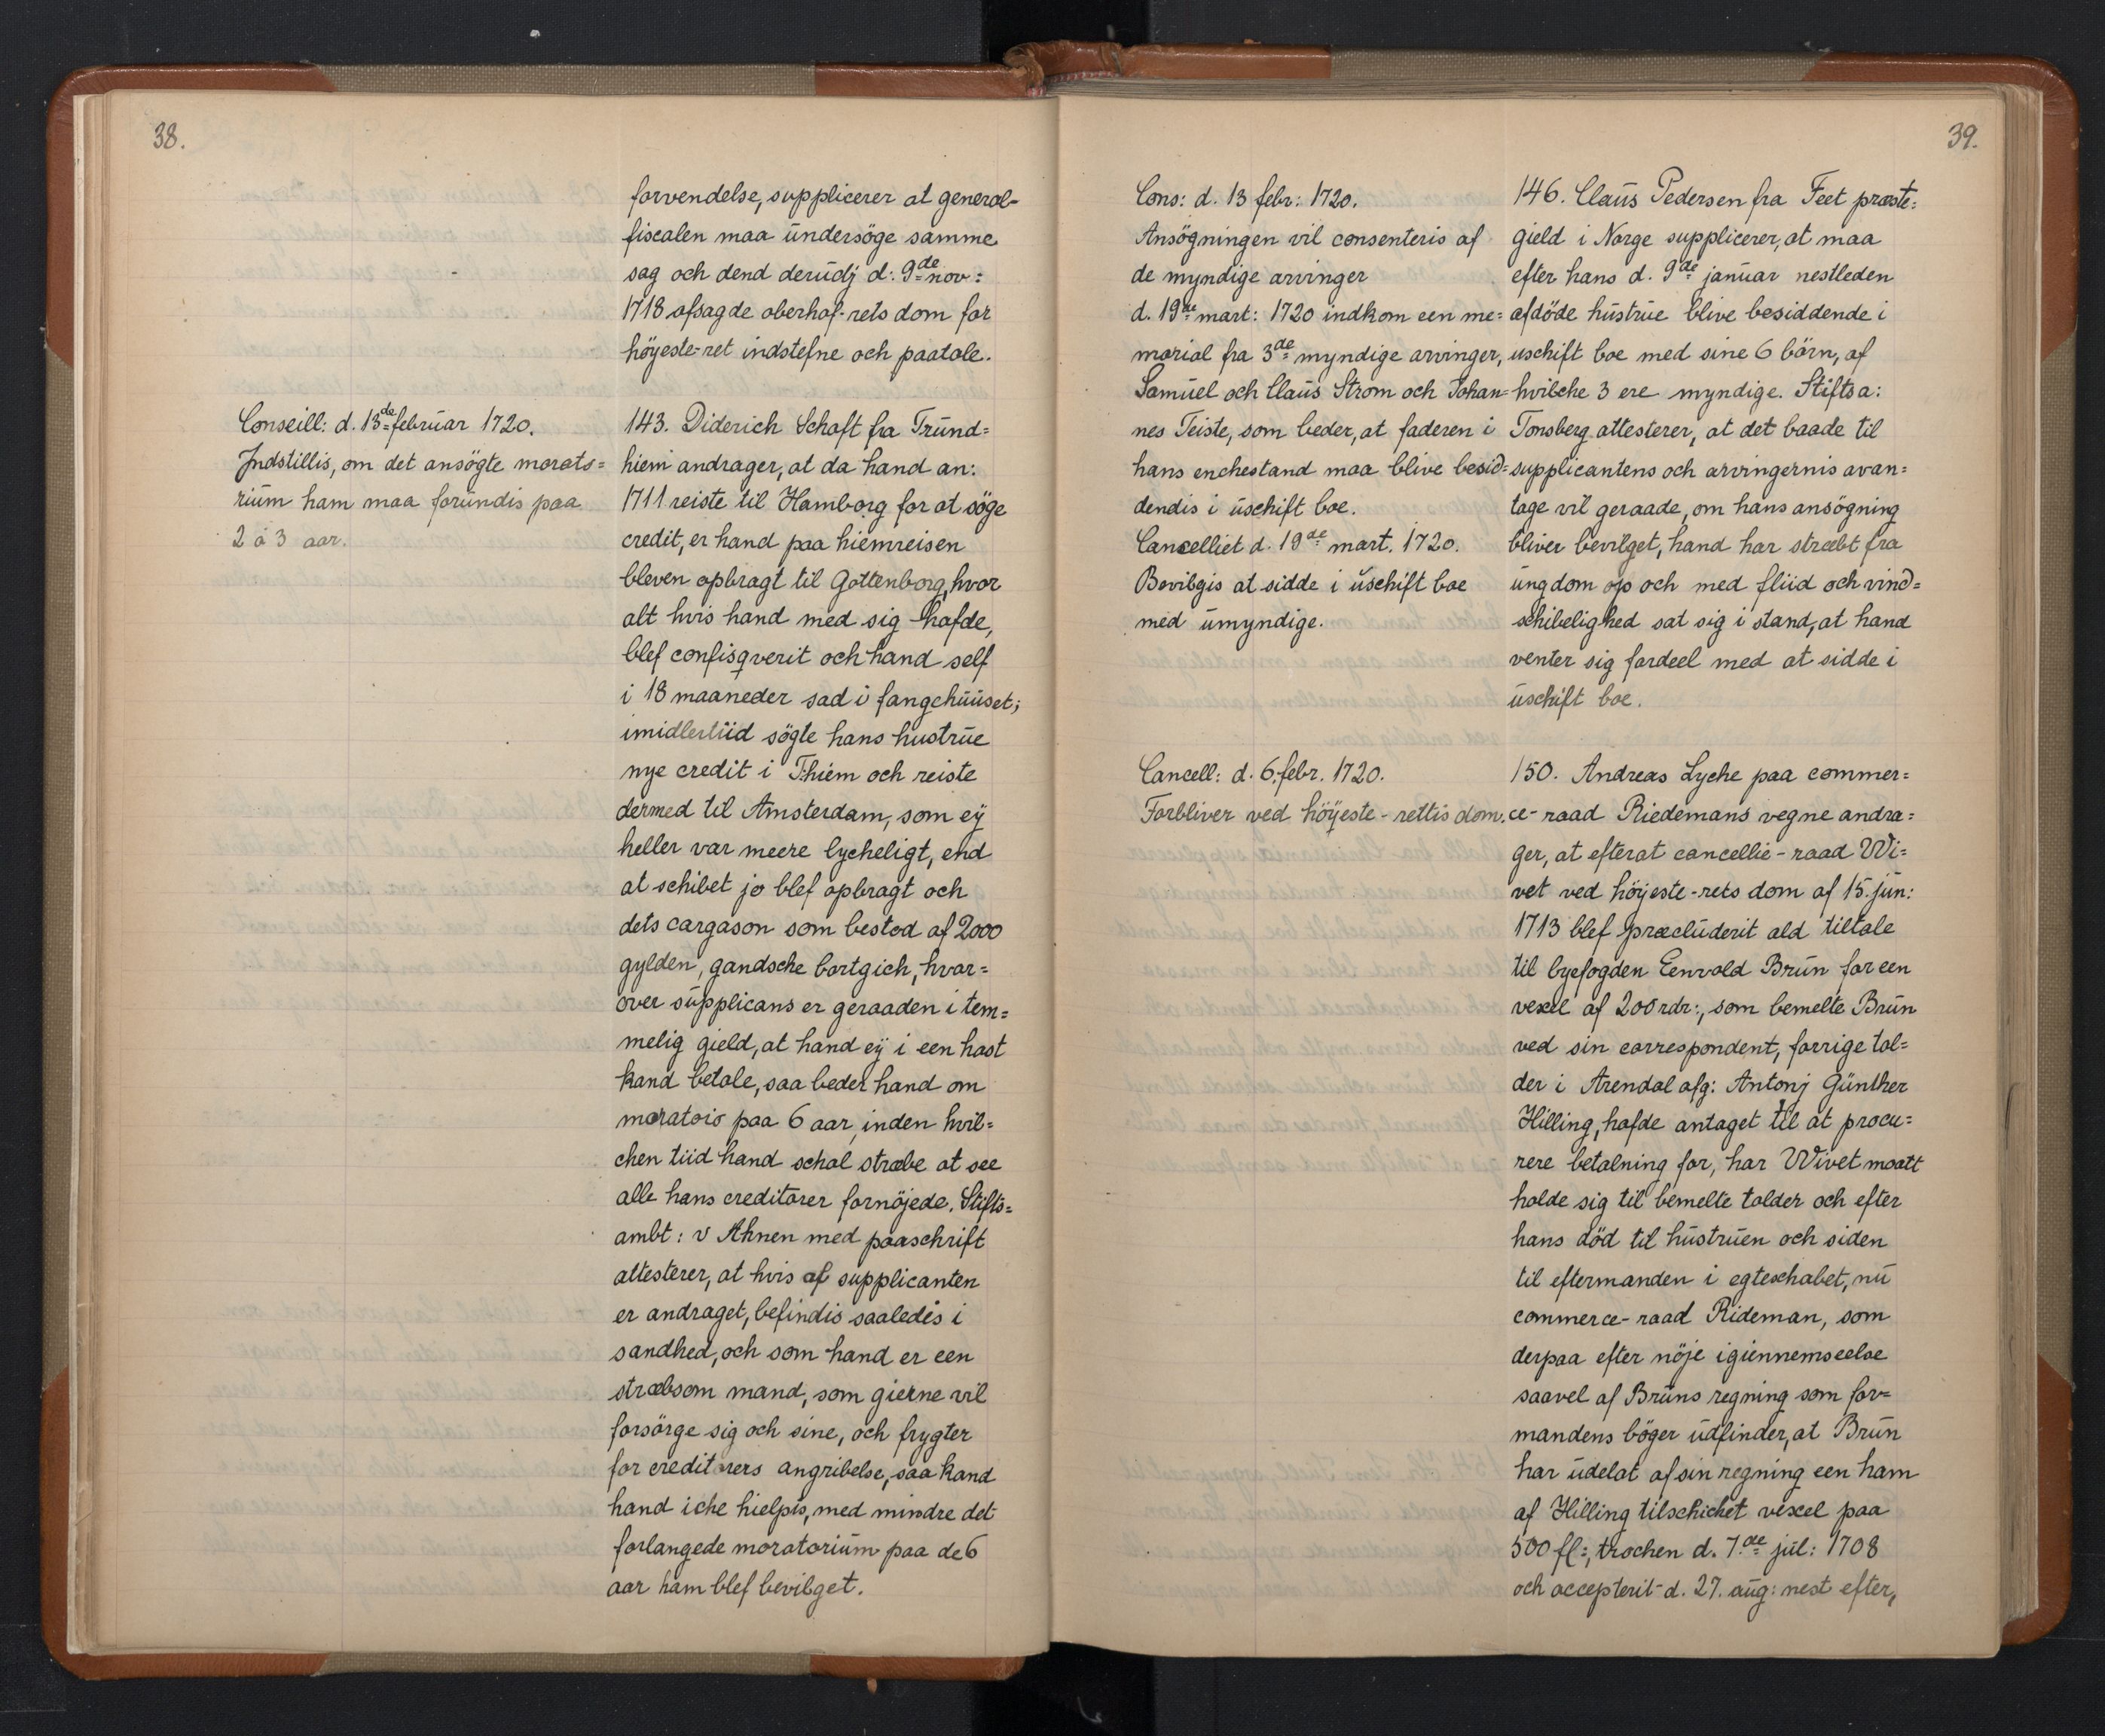 38.
forvendelse, supplicerer at general-
fiscalen maa ündersöge samme
sag och dend derüdj d: 9de nov:
1718 afsagde oberhof-rets dom for
höyeste-ret indstefne och paatale.
Conseill: d. 13de februar 1720.
Indstillis, om det ansögte morato=
rium ham maa forundis paa
2 à 3 aar.
143. Diderich Schaft fra Tründ=
hiem andrager, at da hand an:
1711 reiste til Hamborg for at söge
credit, er hand paa hiemreisen
bleven opbragt til Gottenborg, hvor
alt hvis hand med sig hafde,
blef confisqverit och hand self
i 18 maaneder sad i fangehüüset;
imidlertiid sögte hans hustrüe
nye credit i Thiem och reiste
dermed til Amsterdam, som eÿ
heller var meere lycheligt, end
at schibet jo blef opbragt och
dets cargason som bestod af 2000
gylden, gandsche bortgich, hvor=
over süpplicans er geraaden i tem=
melig gield, at hand eÿ i een hast
kand betale, saa beder hand om
moratois paa 6 aar, inden hvil=
chen tiid hand schal stræbe at see
alle hans creditorer fornöjede. Stifts=
ambt: v Ahnen med paaschrift
attesterer, at hvis af supplicanten
er andraget, befindis saaledes i
sandhed, och som hand er een
stræbsom mand, som gierne vil
forsörge sig och sine, och frygter
for creditorers angribelse, saa kand
hand iche hielpis, med mindre det
forlangede moratorium paa de 6
aar ham blef bevilget.
39.
Cons: d. 13 febr: 1720.
Ansögningen vil consenteris af
de myndige arvinger
d. 19de mart: 1720 indkom een me=
morial fra 3de myndige arvinger,
Samüel och Claüs Strom och Johan=
nes Teiste, som beder, at faderen i
hans enchestand maa blive besid=
dendis i üschift boe.
Cancelliet d. 19de mart. 1720.
Bevilgis at sidde i üschift boe
med ümyndige.
146. Claüs Pedersen fra Feet præste=
gield i Norge supplicerer, at maa
efter hans d. 9de januar nestleden
afdöde hüstrüe blive besiddende i
uschift boe med sine 6 börn, af
hvilche 3 ere myndige. Stiftsa:
Tonsberg attesterer, at det baade til
supplicantens och arvingernis avan=
tage vil geraade, om hans ansögning
bliver bevilget, hand har stræbt fra
üngdom op och med fliid och vind=
schibelighed sat sig i stand, at hand
venter sig fordeel med at sidde i
üschift boe.
Cancell: d. 6. febr. 1720.
Forbliver ved höÿeste-rettis dom.
150. Andreas Lyche paa commer=
ce-raad Riedemans vegne andra=
ger, at efterat cancellie-raad Wi=
vet ved höÿeste-rets dom af 15. jün:
1713 blef præclüderit ald tiltale
til byefogden Eenvold Brün for een
vexel af 200 rdr:, som bemelte Brün
ved sin correspondent, forrige tol=
der i Arendal afg: Antonj Günther
Hilling, hafde antaget til at procu=
rere betalning for, har Wivet maatt
holde sig til bemelte tolder och efter
hans död til hüstrüen och siden
til eftermanden i egteschabet, nü
commerce-raad Rideman, som
derpaa efter nöje igiennemseelse
saavel af Brüns regning som for=
mandens böger üdfinder, at Brün
har üdelat af sin regning een ham
af Hilling tilschichet vexel paa
500 fl:, trochen d. 7de jül: 1708
och accepterit d. 27. aüg: nest efter,